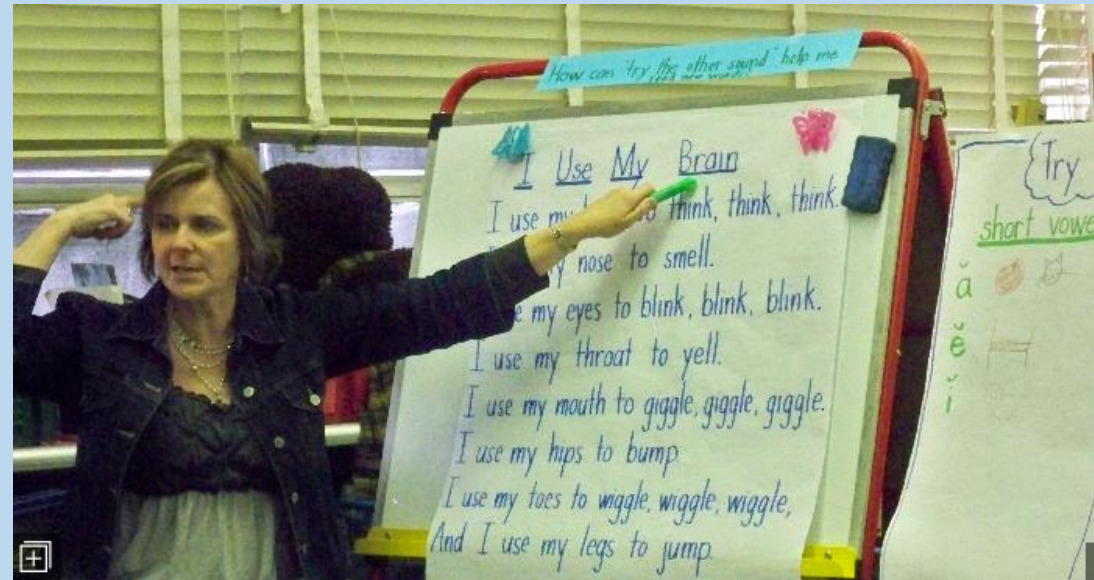 How can "try the other sound" help me
I Use My Brain
I use my to think, think, think.
my nose to smell.
use my eyes to blink, blink, blink.
I use my throat to yell.
I use my mouth to giggle, giggle, giggle.
I use my hips to bump.
I use my toes to wiggle, wiggle, wiggle,
And I use my legs to jump.
Try
short vowe
ă
ĕ
ĭ